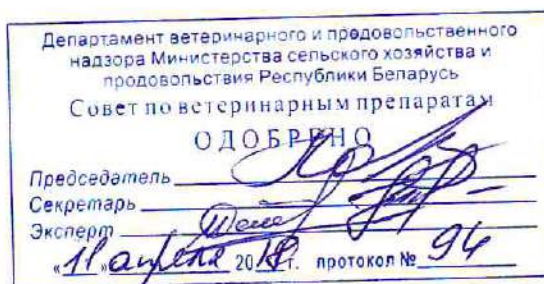 Департамент ветеринарного и продовольственного
надзора Министерства сельского хозяйства и
продовольствия Республики Беларусь
Совет по ветеринарным препаратам
ОДОБРЕНО
Председатель
Секретарь
Эксперт
«11» апреля 2018г. протокол № 94